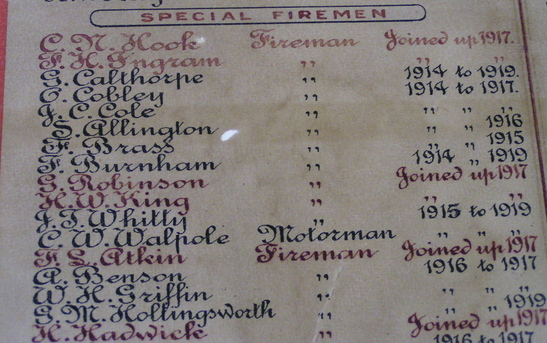 SPECIAL FIREMEN
C. N. Hook Fireman Joined up 1917.
F. H. Ingram ,, ,, ,,
G. Calthorpe ,, 1914 to 1919.
C. Cobley ,, 1914 to 1917.
J. C. Cole ,, ,, ,, ,,
S. Allington ,, ,, ,, 1916
F. Brass ,, ,, ,, 1915
F. Burnham ,, 1914 ,, 1919
G. Robinson ,, Joined up 1917
H. W. King ,, ,, ,,
J. T. Whitty ,, 1915 to 1919
C. W. Walpole Motorman ,, ,, ,,
F. L. Atkin Fireman Joined up 1917
A. Benson ,, 1916 to 1917
W. H. Griffin ,, ,, ,, ,,
G. M. Hollingsworth ,, ,, ,, 1919
H. Hadwick ,, Joined up 1917
1916 to 1917